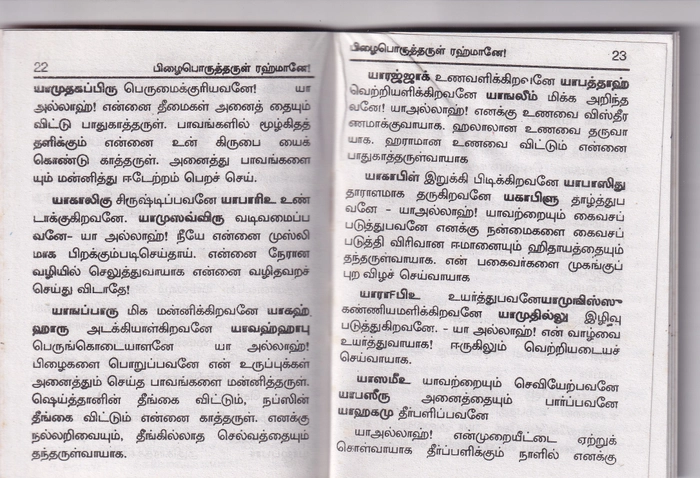 22 பிழைபொருத்தருள் ரஹ்மானே!
யாமுதகப்பிரு பெருமைக்குரியவனே! யா
அல்லாஹ்! என்னை தீமைகள் அனைத் தையும்
விட்டு பாதுகாத்தருள். பாவங்களில் மூழ்கிதத்
தளிக்கும் என்னை உன் கிருபை யைக்
கொண்டு காத்தருள். அனைத்து பாவங்களை
யும் மன்னித்து ஈடேற்றம் பெறச் செய்.
யாகாலிகு சிருஷ்டிப்பவனே யாபாரிஉ உண்
டாக்குகிறவனே. யாமுஸவ்விரு வடிவமைப்ப
வனே- யா அல்லாஹ்! நீயே என்னை முஸ்லி
மாக பிறக்கும்படிசெய்தாய். என்னை நேரான
வழியில் செலுத்துவாயாக என்னை வழிதவறச்
செய்து விடாதே!
யாஙப்பாரு மிக மன்னிக்கிறவனே யாகஹ்
ஹாரு அடக்கியாள்கிறவனே யாவஹ்ஹாபு
பெருங்கொடையாளனே யா அல்லாஹ்!
பிழைகளை பொறுப்பவனே என் உருப்புக்கள்
அனைத்தும் செய்த பாவங்களை மன்னித்தருள்.
ஷெய்த்தானின் தீங்கை விட்டும், நப்ஸின்
தீங்கை விட்டும் என்னை காத்தருள். எனக்கு
நல்லறிவையும், தீங்கில்லாத செல்வத்தையும்
தந்தருள்வாயாக.
பிழைபொருத்தருள் ரஹ்மானே! 23
யாரஜ்ஜாக் உணவளிக்கிறவனே யாபத்தாஹ்
வெற்றியளிக்கிறவனே யாஙலீம் மிக்க அறிந்த
வனே! யாஅல்லாஹ்! எனக்கு உணவை விஸ்தீர
ணமாக்குவாயாக. ஹலாலான உணவை தருவா
யாக. ஹராமான உணவை விட்டும் என்னை
பாதுகாத்தருள்வாயாக
யாகாபிள் இறுக்கி பிடிக்கிறவனே யாபாஸிது
தாராளமாக தருகிறவனே யாகாபிளு தாழ்த்துப
வனே - யாஅல்லாஹ்! யாவற்றையும் கைவசப்
படுத்துபவனே எனக்கு நன்மைகளை கைவசப்
படுத்தி விரிவான ஈமானையும் ஹிதாயத்தையும்
தந்தருள்வாயாக. என் பகைவர்களை முகங்குப்
புற விழச் செய்வாயாக
யாராபிஉ உயர்த்துபவனேயாமுவிஸ்ஸு
கண்ணியமளிக்கிறவனே யாமுதில்லு இழிவு
படுத்துகிறவனே. - யா அல்லாஹ்! என் வாழ்வை
உயர்த்துவாயாக! ஈருகிலும் வெற்றியடையச்
செய்வாயாக.
யாஸமீஉ யாவற்றையும் செவியேற்பவனே
யாபஸீரு அனைத்தையும் பார்ப்பவனே
யாஹகமு தீர்பளிப்பவனே
யாஅல்லாஹ்! என்முறையீட்டை ஏற்றுக்
கொள்வாயாக தீர்ப்பளிக்கும் நாளில் எனக்கு